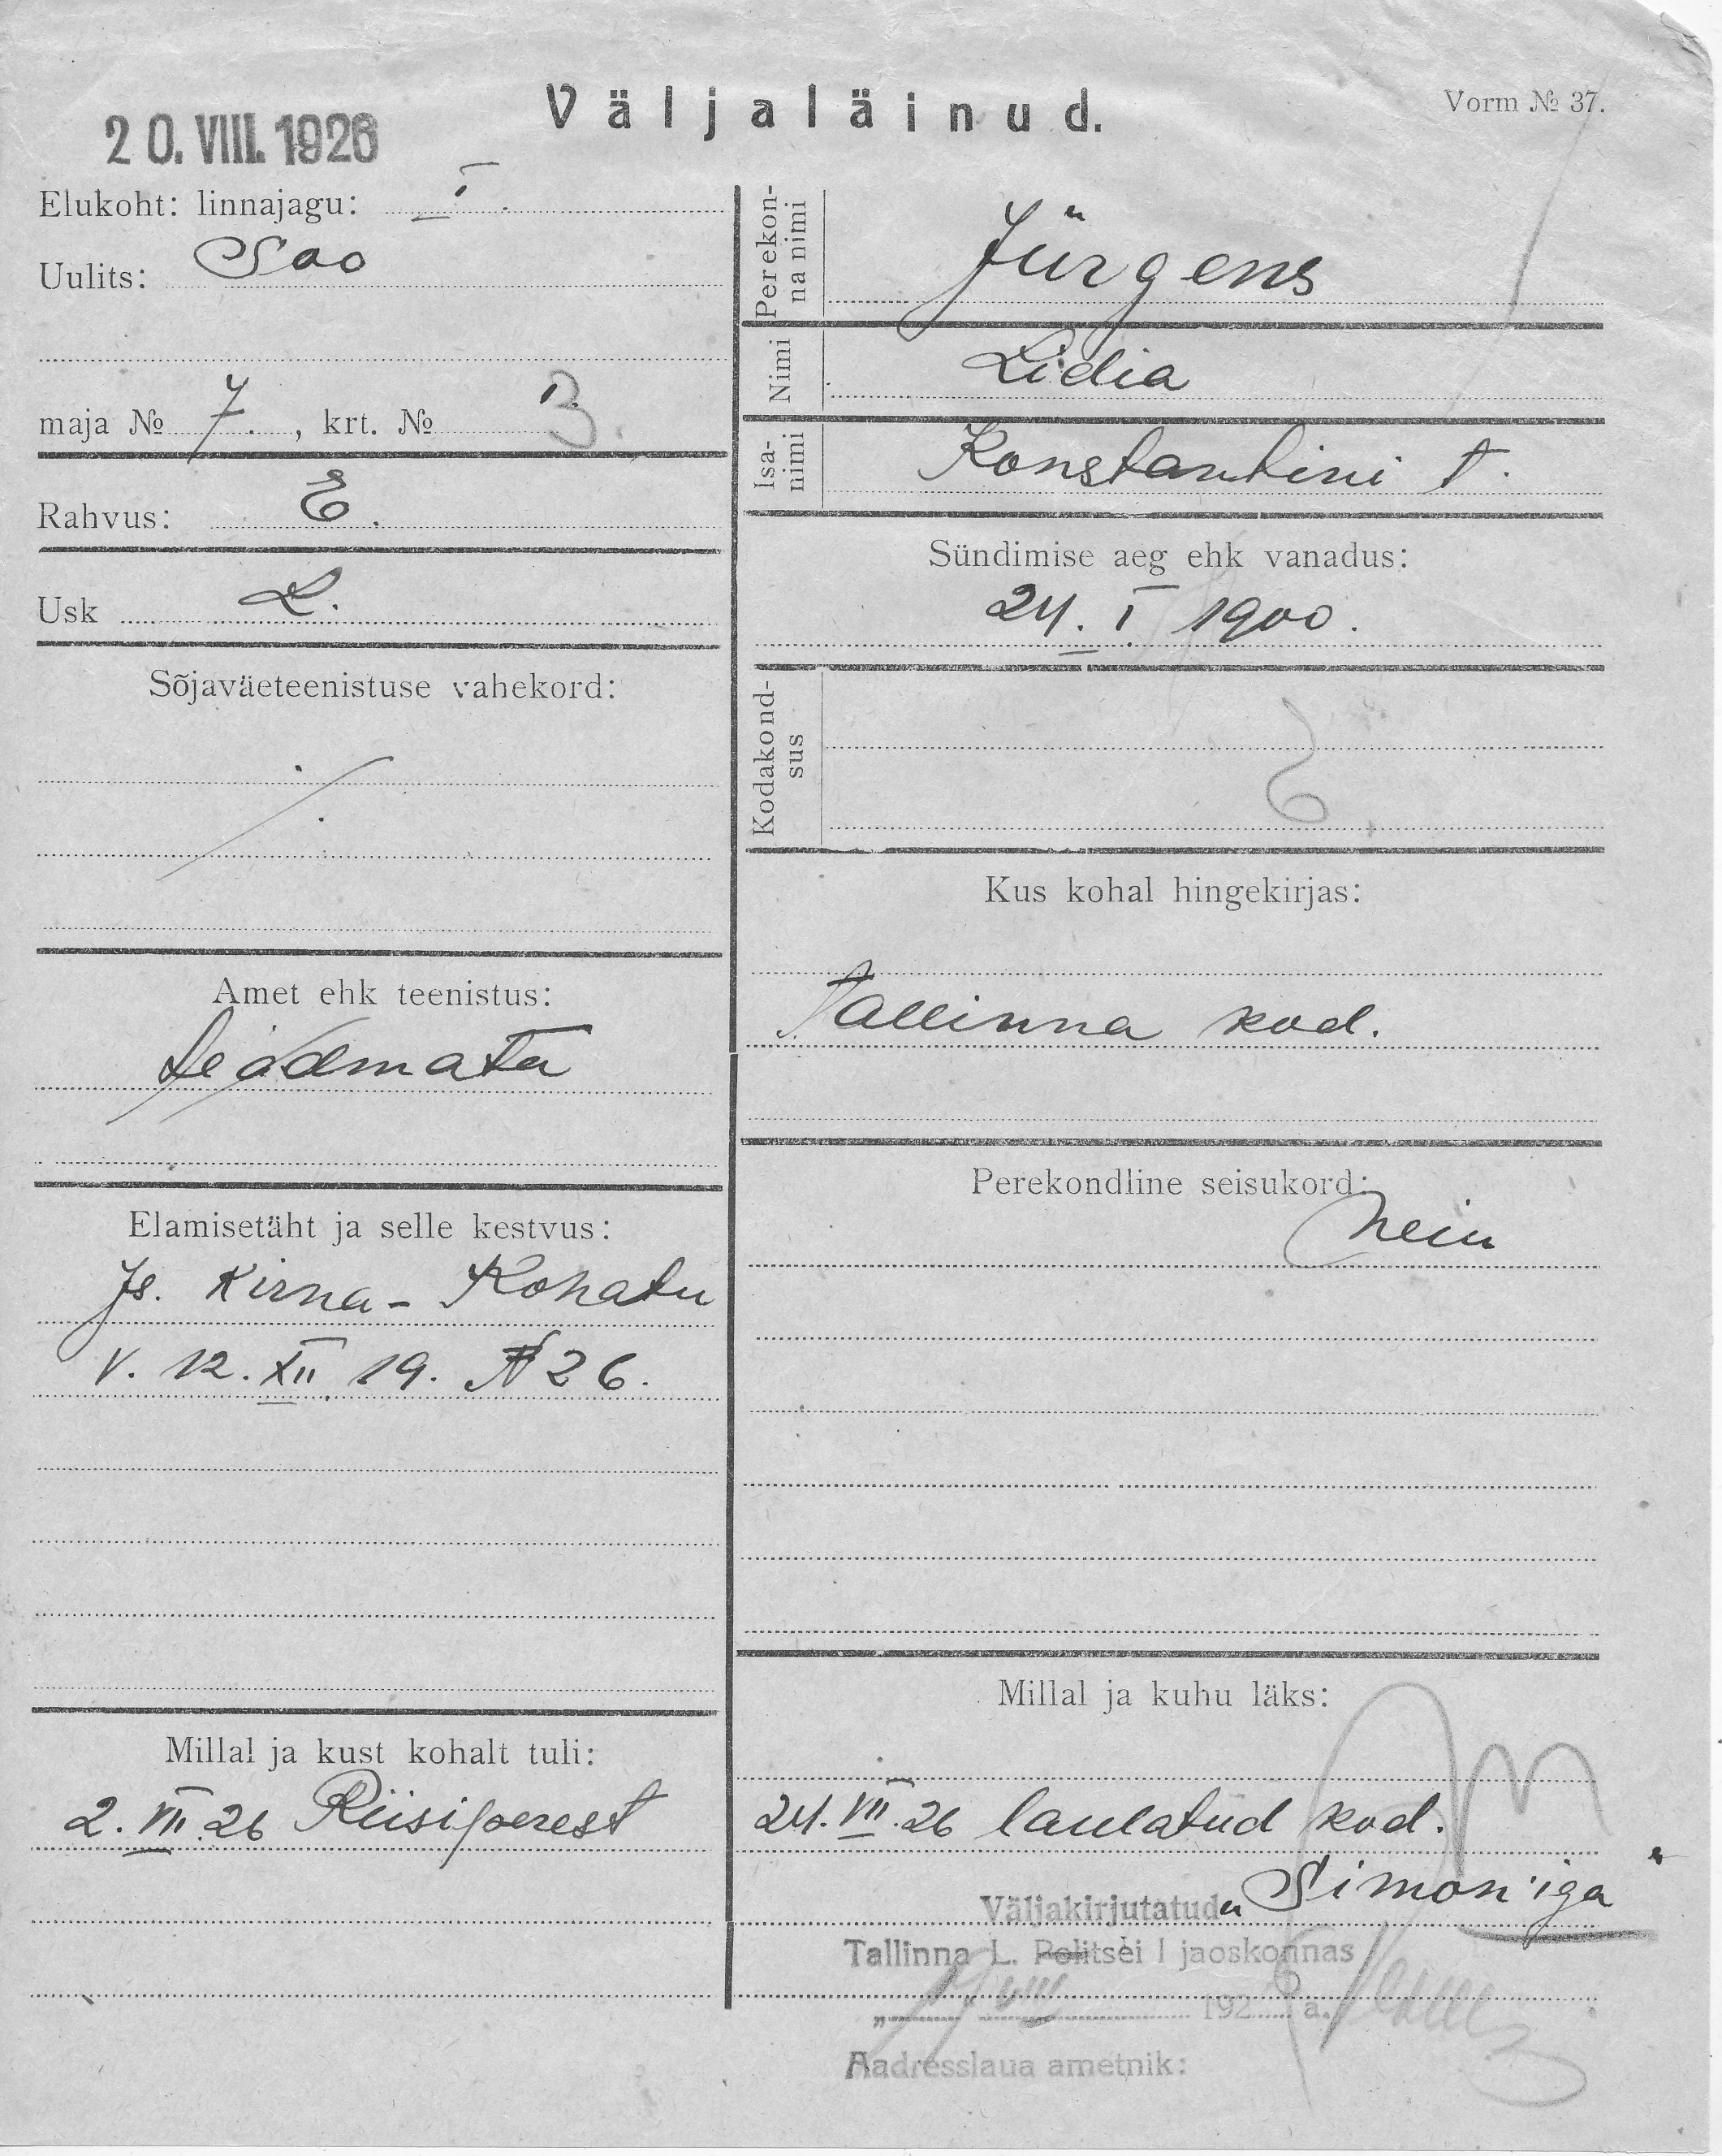 Väljaläinud.
Vorm № 37.
20. VIII. 1926
Elukoht: linnajagu: I.
Uulits: Soo
maja № 7., krt. № 3.
Rahvus: E.
Usk L.
Sõjaväeteenistuse vahekord:
Amet ehk teenistus:
teadmata
Elamisetäht ja selle kestvus:
Is. Kirna-Kohatu
v. 12. XII 19. № 26.
Millal ja kust kohalt tuli:
2. VII. 26 Riisiperest
Perekonna nimi
Jürgens
Nimi
Lidia
Isanimi
Konstantini t.
Sündimise aeg ehk vanadus:
24. I 1900.
Kodakondsus
E
Kus kohal hingekirjas:
Tallinna kod.
Perekondline seisukord:
Neiu
Millal ja kuhu läks:
24. VII. 26 laulatud kod.
„Simon'iga"
Väljakirjutatud
Tallinna L. Politsei I jaoskonnas
„17" VIII 1926 a.
Aadresslaua ametnik: